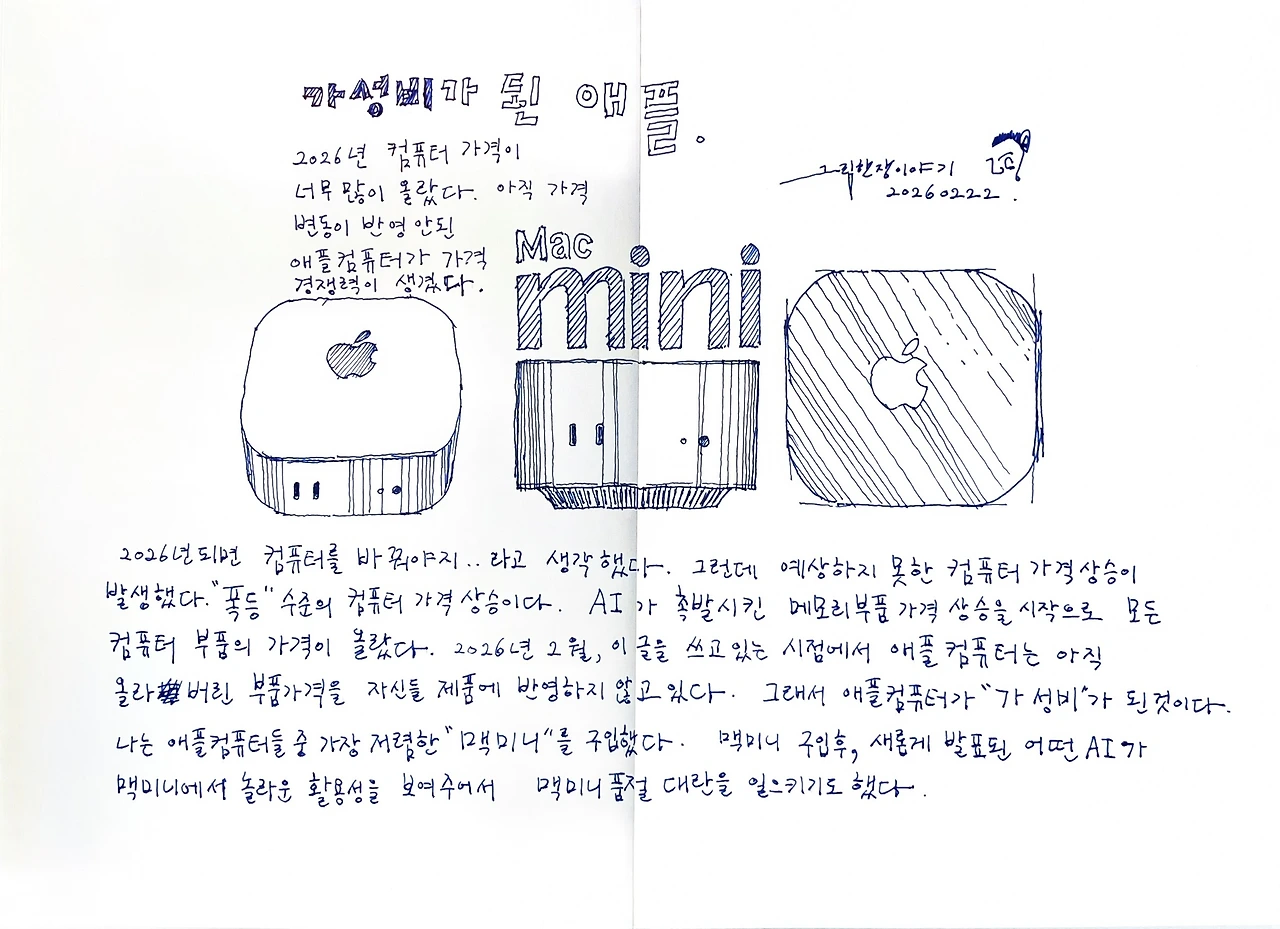 가성비가 된 애플.
2026년 컴퓨터 가격이
너무 많이 올랐다. 아직 가격
변동이 반영 안된
애플컴퓨터가 가격
경쟁력이 생겼다.
그림한장이야기
20260222.
Mac
mini
2026년되면 컴퓨터를 바꿔야지.. 라고 생각했다. 그런데 예상하지 못한 컴퓨터 가격상승이
발생했다. "폭등" 수준의 컴퓨터 가격상승이다. AI가 촉발시킨 메모리부품 가격 상승을 시작으로 모든
컴퓨터 부품의 가격이 올랐다. 2026년 2월, 이 글을 쓰고있는 시점에서 애플컴퓨터는 아직
올라버린 부품가격을 자신들 제품에 반영하지 않고있다. 그래서 애플컴퓨터가 "가성비"가 된것이다.
나는 애플컴퓨터들 중 가장 저렴한 "맥미니"를 구입했다. 맥미니 구입후, 새롭게 발표된 어떤 AI가
맥미니에서 놀라운 활용성을 보여주어서 맥미니 품절 대란을 일으키기도 했다.